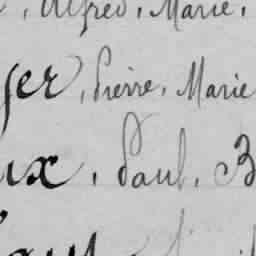 , Alfred, Marie,
ger, Pierre, Marie
ux, Paul, B